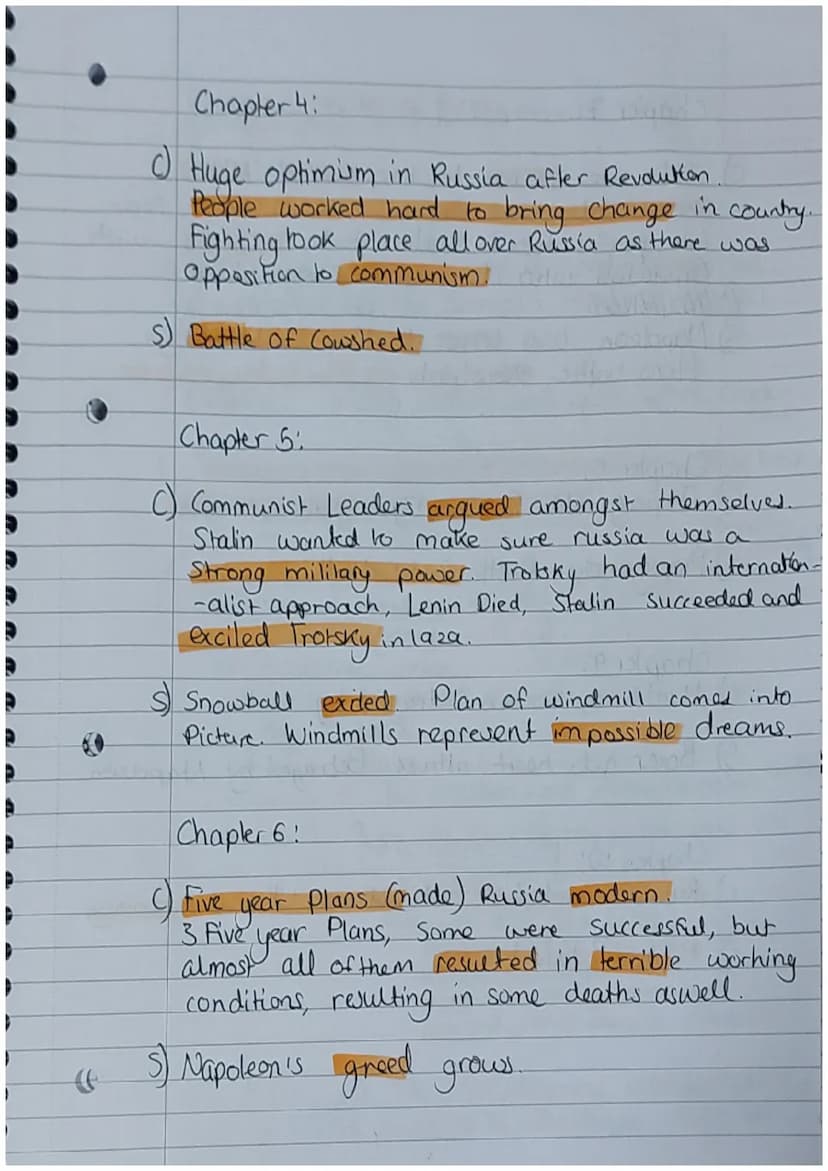 Chapter 4:
C) Huge optimism in Russia after Revolution.
People worked hard to bring change in country.
Fighting took place all over Russia as there was
opposition to communism.
S) Battle of Cowshed.
Chapter 5:
C) Communist Leaders argued amongst themselves.
Stalin wanted to make sure russia was a
Strong military power. Trotsky had an internation-
-alist approach, Lenin Died, Stalin Succeeded and
exciled Trotsky in 1929.
S) Snowball exciled. Plan of windmill comes into
Picture. Windmills represent impossible dreams.
Chapter 6:
C) Five year Plans (made) Russia modern.
3 Five year Plans, Some were Successful, but
almost all of them resulted in terrible working
conditions, resulting in some deaths aswell.
S) Napoleon's greed grows.